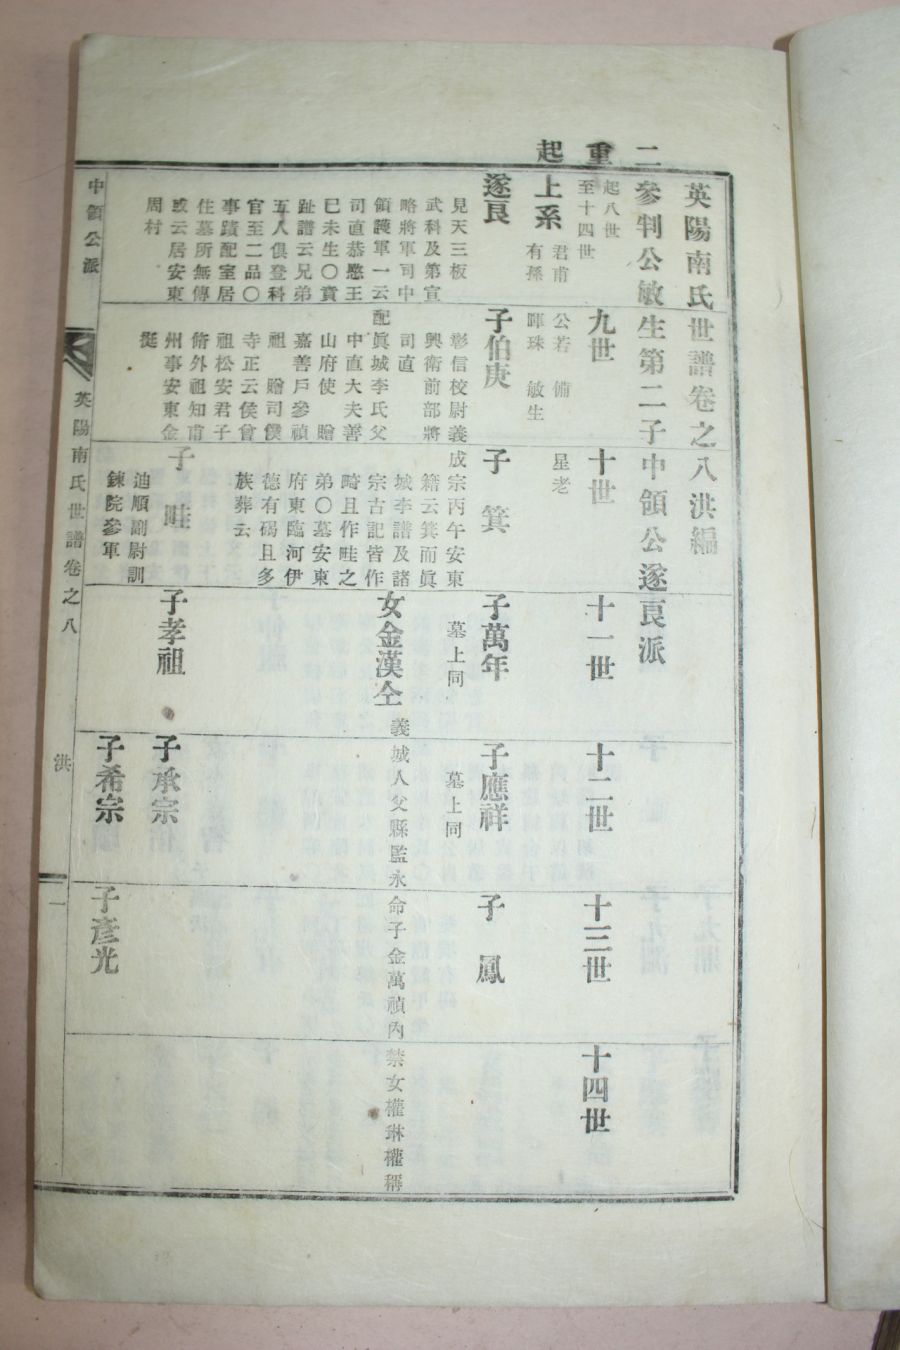 二重起
英陽南氏世譜卷之八洪編
參判公敏生第二子中領公遂良派
起八世
至十四世
上系
君甫
有孫
公若
暉珠
備
敏生
星老
九世
十世
十一世
十二世
十三世
十四世
遂良
見天三板
武科及第宣
略將軍司中
領護軍一云
司直恭愍王
己未生〇賣
趾譜云兄弟
五人俱登科
官至二品〇
事蹟配室居
住墓所無傳
或云居安東
周村
子伯庚
彰信校尉義
興衛前部將
司直
配眞城李氏父
中直大夫善
山府使贈
嘉善戶參禎
祖贈司僕
寺正云侯曾
祖松安君子
脩外祖知甫
州事安東金
挺
子箕
成宗丙午安東
籍云箕而眞
城李譜及諸
宗古記皆作
畸且作畦之
弟〇墓安東
府東臨河伊
德有碣且多
族葬云
子畦
迪順副尉訓
鍊院參軍
子萬年
墓上同
女金漢仝
義城人父縣監永命子金萬禎內禁女權琳權稱
子孝祖
子應祥
墓上同
子承宗
子希宗
子鳳
子彥光
中領公派
英陽南氏世譜卷之八
洪
一